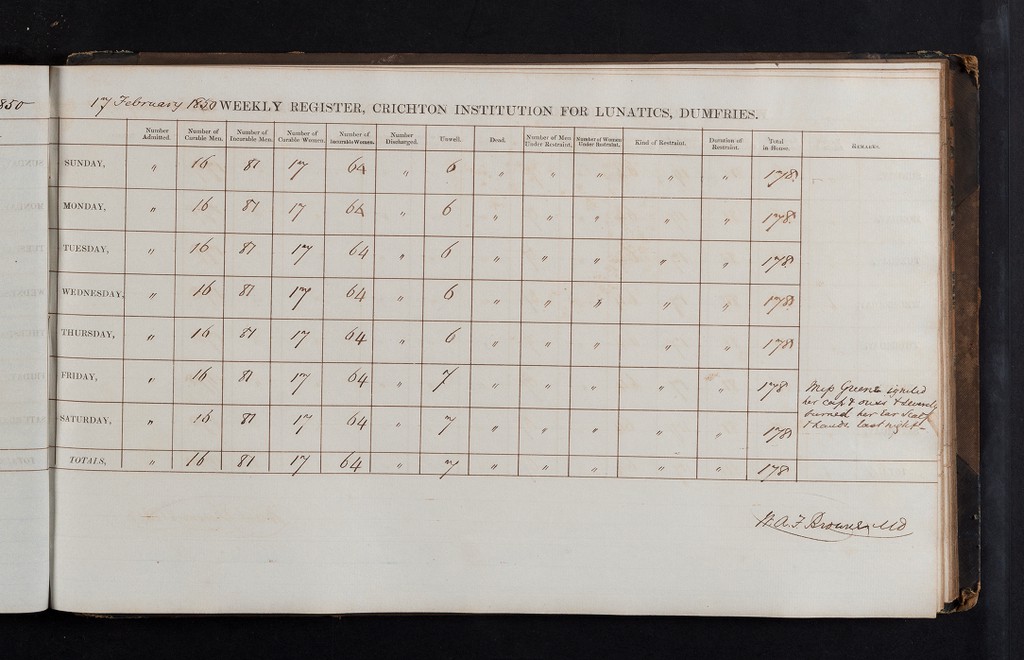 850
17 February 1850 WEEKLY REGISTER, CRICHTON INSTITUTION FOR LUNATICS, DUMFRIES.
Number Admitted. Number of Curable Men. Number of Incurable Men. Number of Curable Women. Number of Incurable Women. Number Discharged. Unwell. Dead. Number of Men Under Restraint. Number of Women Under Restraint. Kind of Restraint. Duration of Restraint. Total in House. REMARKS.
SUNDAY, " 16 81 17 64 " 6 " " " " " 178
MONDAY, " 16 81 17 64 " 6 " " " " " 178
TUESDAY, " 16 81 17 64 " 6 " " " " " 178
WEDNESDAY, " 16 81 17 64 " 6 " " " " " 178
THURSDAY, " 16 81 17 64 " 6 " " " " " 178
FRIDAY, " 16 81 17 64 " 7 " " " " " 178
Miss Greene ignited
her cap &
SATURDAY, " 16 81 17 64 " 7 " " " " " 178
burned her
& hands last night
TOTALS, " 16 81 17 64 " 7 " " " " " 178
W. A. F. Browne MD